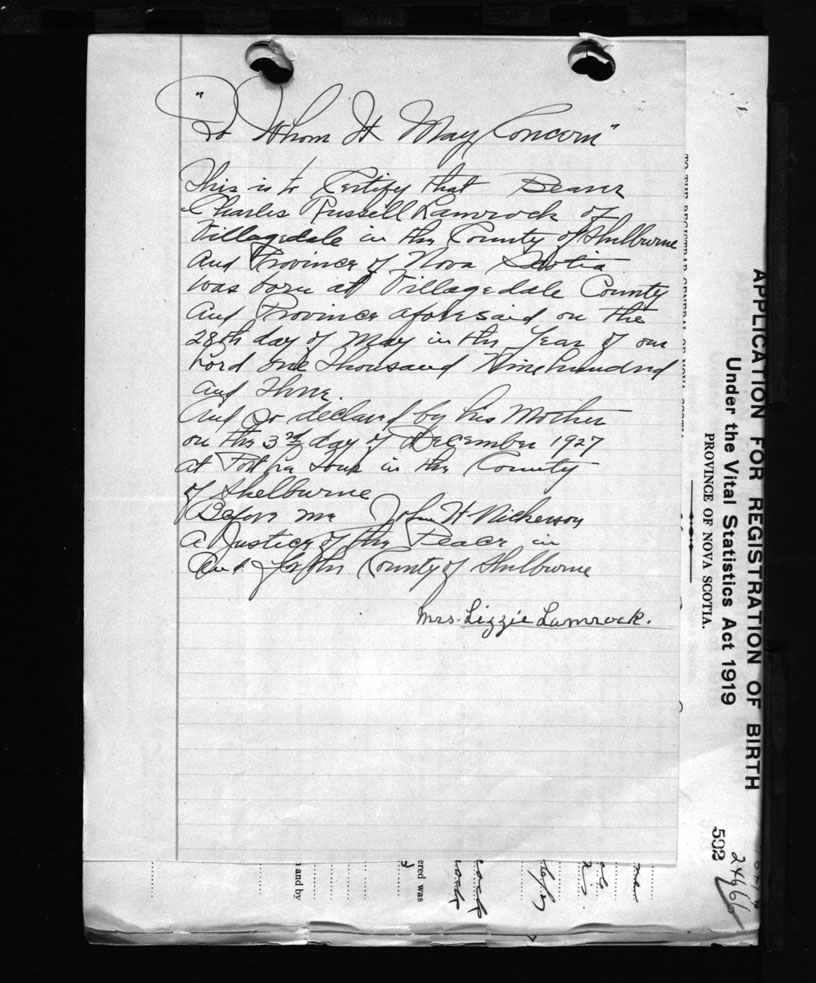 "To Whom It May Concern"
This is to Certify that Bearer
Charles Russell Lamrock of
Villagedale in the County of Shelburne
and Province of Nova Scotia
was born at Villagedale County
and Province aforesaid on the
28th day of May in the Year of our
Lord One Thousand Nine hundred
and Three.
And so declared by his Mother
on the 3rd day of December 1927
at Port La Tour in the County
of Shelburne
Before me John H Nickerson
a Justice of the Peace in
and for the County of Shelburne
Mrs. Lizzie Lamrock.
TO THE REGISTRAR GENERAL OF NOVA SCOTIA
APPLICATION FOR REGISTRATION OF BIRTH
Under the Vital Statistics Act 1919
PROVINCE OF NOVA SCOTIA.
592
24966
ered was
and by